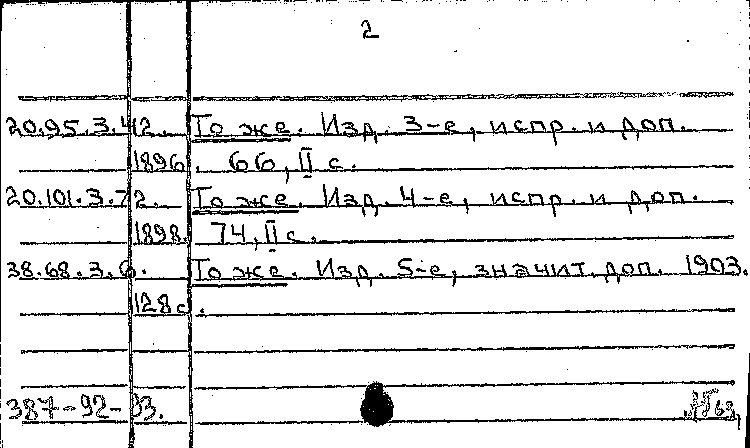 2
20.95.3.42. То же. Изд. 3-е, испр. и доп.
1896. 66, II с.
20.101.3.72. То же. Изд. 4-е, испр. и доп.
1898. 74, II с.
38.68.3.6. То же. Изд. 5-е, значит. доп. 1903.
128 с.
387-92-93.